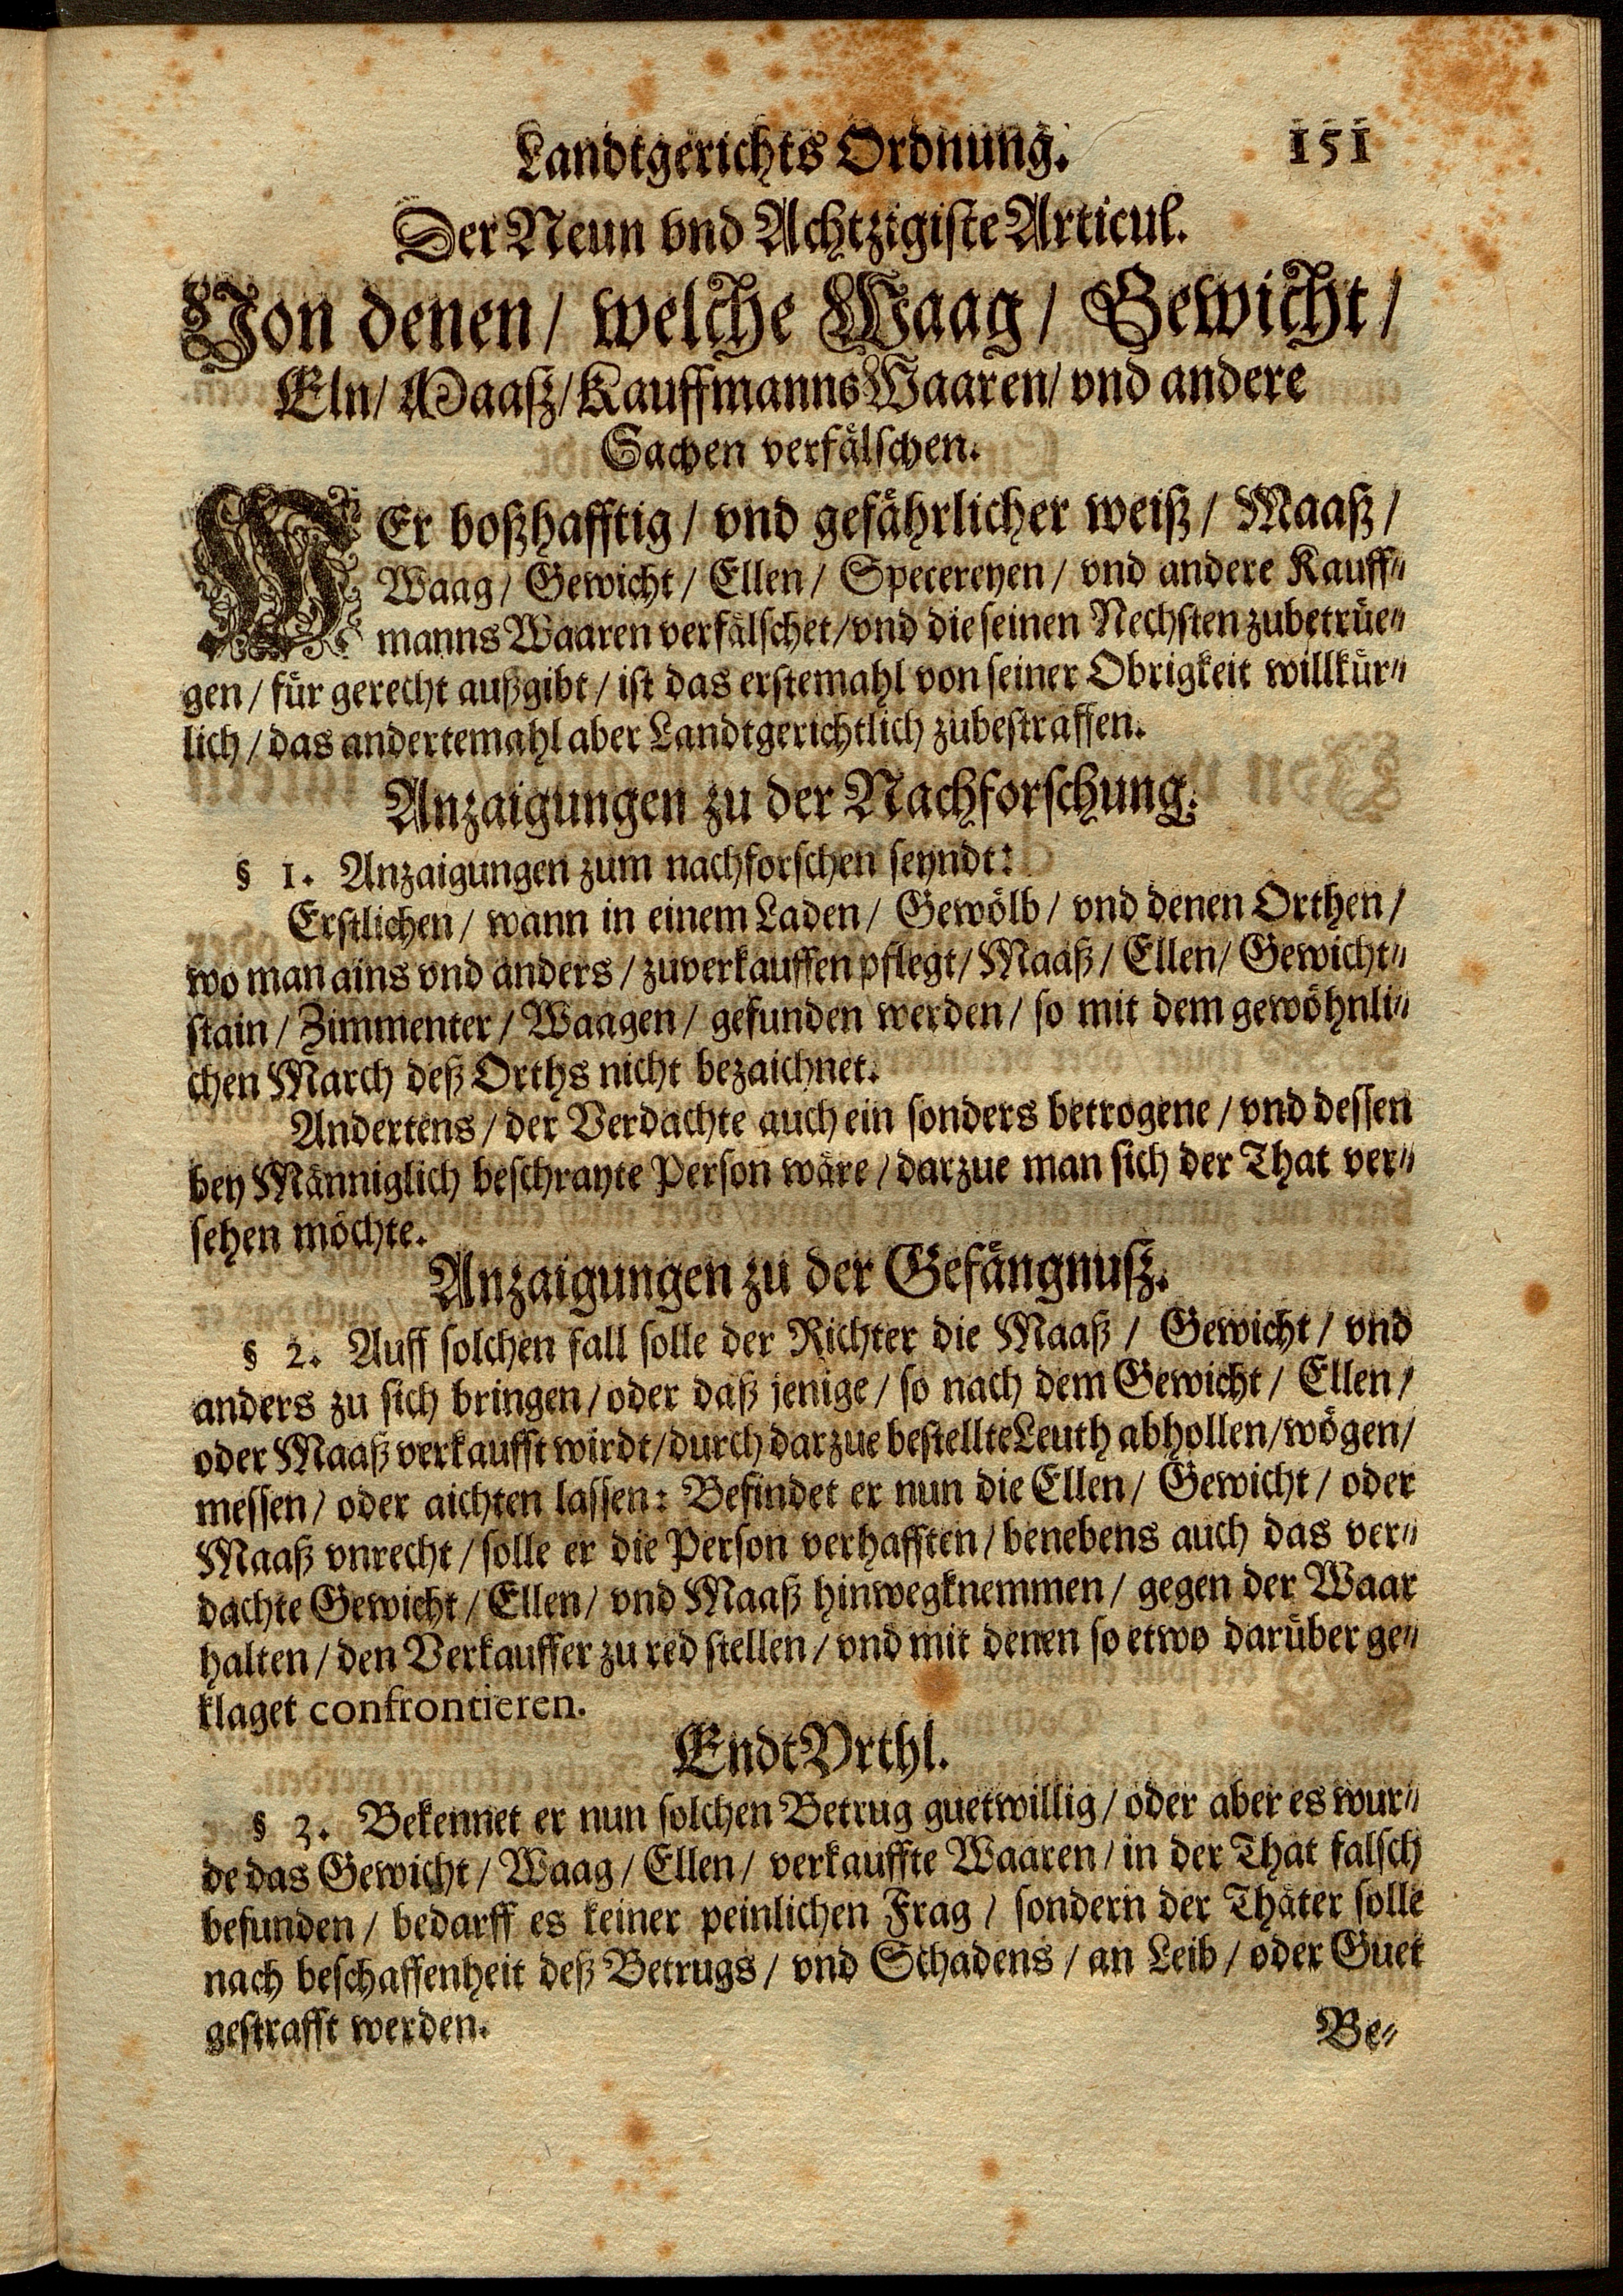 Landtgerichts Ordnung. 151
Der Neun vnd Achtzigiste Articul.
Von denen / welche Waag / Gewicht /
Eln / Maaß / Kauffmanns Waaren / vnd andere
Sachen verfälschen.
WEr boßhafftig / vnd gefährlicher weiß / Maaß /
Waag / Gewicht / Ellen / Specereyen / vnd andere Kauff⸗
manns Waaren verfälschet / vnd die seinen Nechsten zubetrüe⸗
gen / für gerecht außgibt / ist das erstemahl von seiner Obrigkeit willkür⸗
lich / das andertemahl aber Landtgerichtlich zubestraffen.
Anzaigungen zu der Nachforschung.
§ 1. Anzaigungen zum nachforschen seyndt:
Erstlichen / wann in einem Laden / Gewölb / vnd denen Orthen /
wo man ains vnd anders / zuverkauffen pflegt / Maaß / Ellen / Gewicht⸗
stain / Zimmenter / Waagen / gefunden werden / so mit dem gewöhnli⸗
chen March deß Orths nicht bezaichnet.
Andertens / der Verdachte auch ein sonders betrogene / vnd dessen
bey Männiglich beschrayte Person wäre / darzue man sich der That ver⸗
sehen möchte.
Anzaigungen zu der Gefängnuß.
§ 2. Auff solchen fall solle der Richter die Maaß / Gewicht / vnd
anders zu sich bringen / oder daß jenige / so nach dem Gewicht / Ellen /
oder Maaß verkaufft wirdt / durch darzue bestellte Leuth abhollen / wögen /
messen / oder aichten lassen: Befindet er nun die Ellen / Gewicht / oder
Maaß vnrecht / solle er die Person verhafften / benebens auch das ver⸗
dachte Gewicht / Ellen / vnd Maaß hinwegknemmen / gegen der Waar
halten / den Verkauffer zu red stellen / vnd mit denen so etwo darüber ge⸗
klaget confrontieren.
Endt Vrthl.
§ 3. Bekennet er nun solchen Betrug guetwillig / oder aber es wur⸗
de das Gewicht / Waag / Ellen / verkauffte Waaren / in der That falsch
befunden / bedarff es keiner peinlichen Frag / sondern der Thäter solle
nach beschaffenheit deß Betrugs / vnd Schadens / an Leib / oder Guet
gestrafft werden.
Be⸗